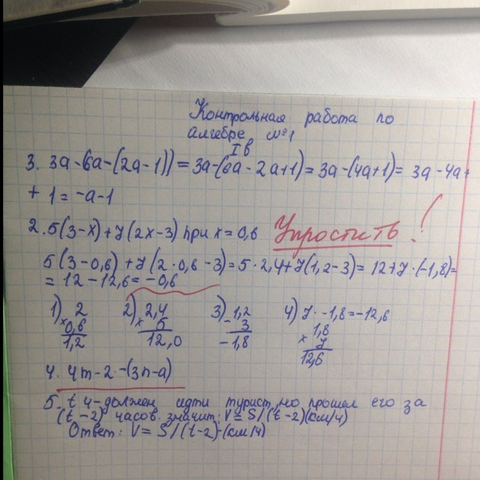 Контрольная работа по
алгебре №1
I в
3. 3a-(6a-(2a-1))=3a-(6a-2a+1)=3a-(4a+1)= 3a-4a+
+ 1=-a-1
2. 5(3-x)+7(2x-3) при x=0,6 Упростить!
5(3-0,6)+7(2·0,6-3)=5·2,4+7(1,2-3)=12+7·(-1,8)=
= 12-12,6=-0,6
1) 2 2) 2,4 3) 1,2 4) 7·-1,8=-12,6
×0,6 × 5 - 3 1,8
1,2 12,0 -1,8 × 7
12,6
4. 4m-2-(3n-a)
5. t ч-должен идти турист, но прошел его за
(t-2) часов. значит: V=S/(t-2)(км/ч)
Ответ: V= S/(t-2)-(км/ч)